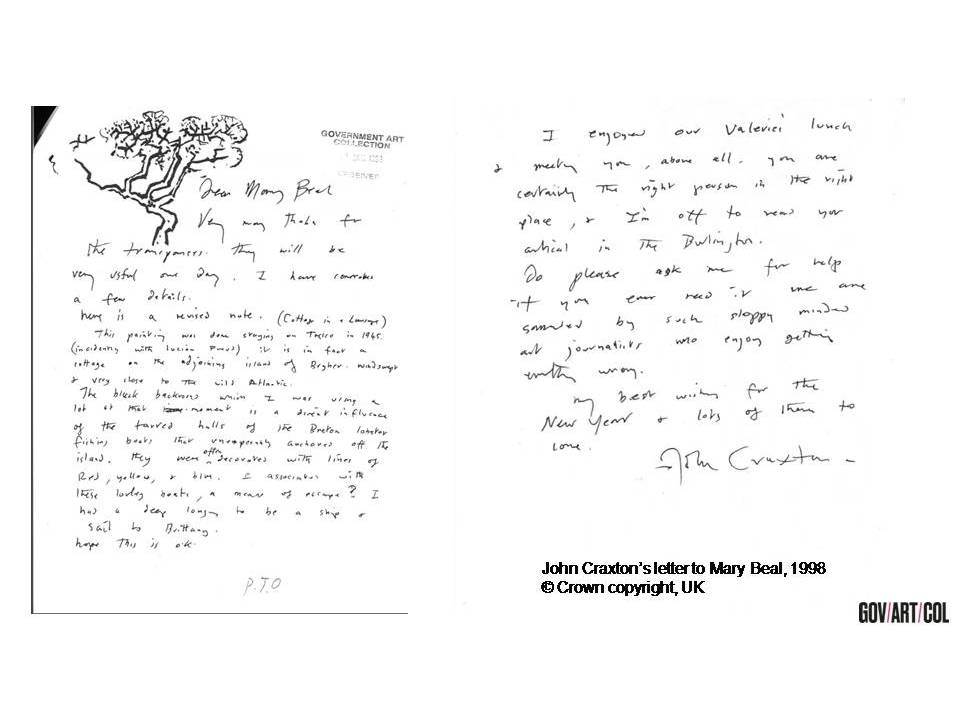 GOVERNMENT ART
COLLECTION
RECEIVED
Dear Mary Beal
Very many thanks for
the transparences. They will be
very usful one day. I have corrected
a few details.
here is a revised note. (Cottage in a Landscape)
This painting was done staying on Tresco in 1945.
(incidently with Lucian Freud) it is in fact a
cottage on the adjoining island of Bryher. windswept
& very close to the wild Atlantic.
The black backround which I was using a
lot at that moment is a direct influence
of the tarred hulls of the Breton lobster
fishing boats that anchored off the
island. they were often decorated with lines of
Red, yellow, & blue. I associated with
these lovley boats, a means of escape? I
had a deep to be a ship &
sail to Brittany.
hope This is o.k.
P.T.O
I enjoyed our Valerie's lunch
& meeting you, above all. you are
certainly the right person in the right
place, & I'm off to read your
in The Burlington.
Do please ask me for help
if you ever need it we are
by such sloppy minded
art journalists who enjoy getting
wrong.
my best wishes for the
New Year & lots of them to
come.
John Craxton
John Craxton's letter to Mary Beal, 1998
© Crown copyright, UK
GOV/ART/COL